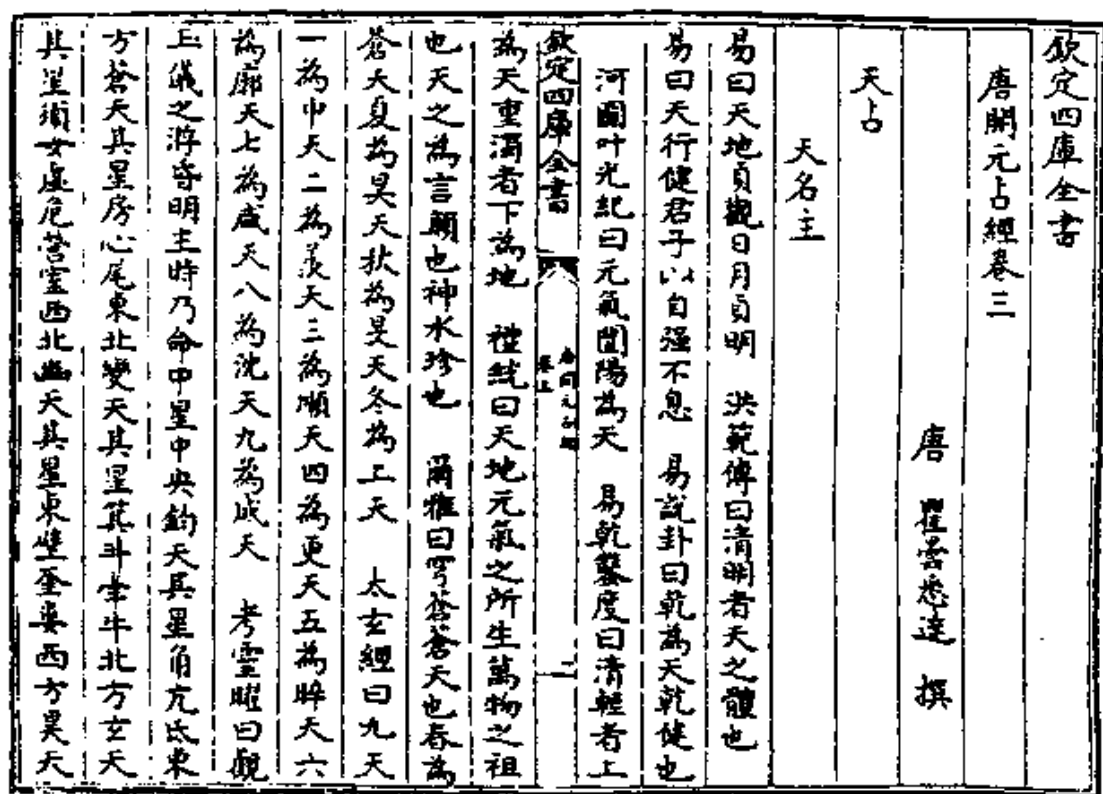 欽定四庫全書
唐開元占經卷三
唐 瞿曇悉達 撰
天占
天名主
易曰天地貞觀日月貞明 洪範傳曰清明者天之體也
易曰天行健君子以自强不息 易說卦曰乾為天乾健也
河圖叶光紀曰元氣闓陽為天 易乾鑿度曰清輕者上
欽定四庫全書
唐開元占經
卷三
一
為天重濁者下為地 禮統曰天地元氣之所生萬物之祖
也天之為言顯也神水珍也 爾雅曰穹蒼蒼天也春為
蒼天夏為昊天秋為旻天冬為上天 太玄經曰九天
一為中天二為羨天三為順天四為更天五為睟天六
為廓天七為咸天八為沈天九為成天 考靈曜曰觀
玉儀之游昏明主時乃命中星中央鈞天其星角亢氐東
方蒼天其星房心尾東北變天其星箕斗牽牛北方玄天
其星須女虛危營室西北幽天其星東壁奎婁西方昊天